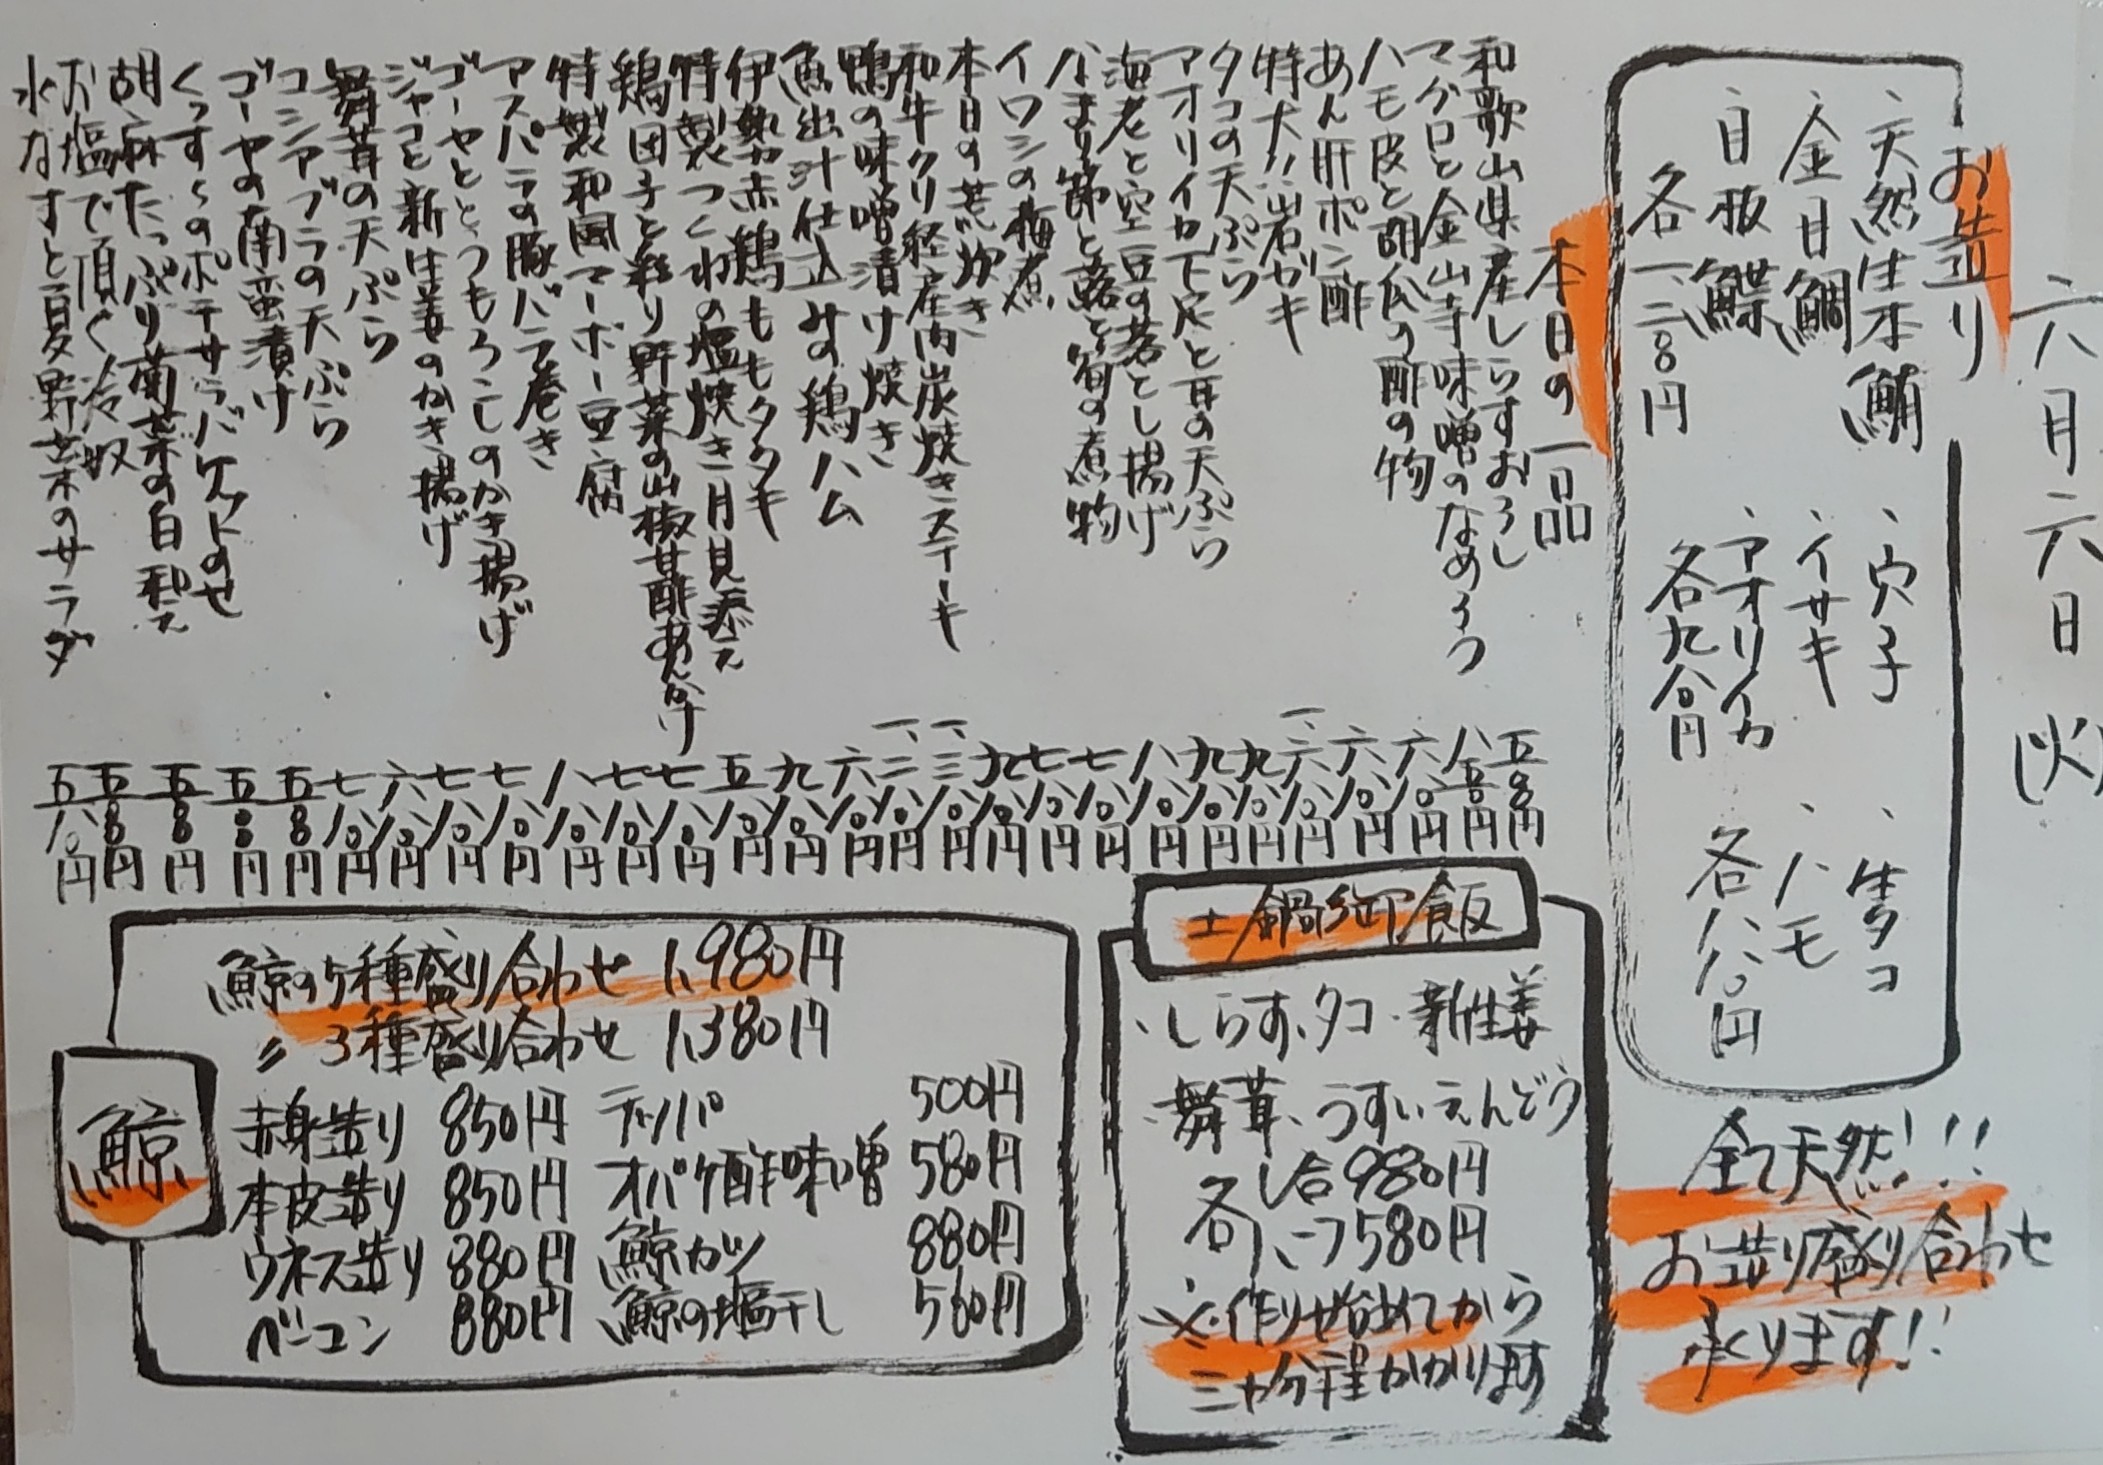 六月六日(火)
お造り
、天然生本鮪
金目鯛
目板鰈
各一、二八〇円
、穴子
、イサキ
、アオリイカ
各九八〇円
、生タコ
、ハモ
各八八〇円
全て天然!!!
お造り盛り合わせ
承ります!!
本日の一品
和歌山県産しらすおろし 五八〇円
マグロと金山寺味噌のなめろう 八五〇円
ハモ皮と胡瓜の酢の物 六八〇円
あん肝ポン酢 六八〇円
特大!!岩ガキ
タコの天ぷら 九八〇円
アオリイカ下足と耳の天ぷら 九八〇円
海老と空豆の落とし揚げ 八八〇円
なまり節と蕗と筍の煮物 七八〇円
イワシの梅煮 七八〇円
本日の荒炊き 九八〇円
和牛クリ経産肉炭焼きステーキ
鴨の味噌漬け焼き
魚出汁仕込みの鶏ハム 六八〇円
伊勢赤鶏ももタタキ 九八〇円
特製つくねの塩焼き月見添え 五八〇円
鶏団子と彩り野菜の山椒甘酢あんかけ 七八〇円
特製和風マーボー豆腐 七八〇円
アスパラの豚バラ巻き 八八〇円
ゴーヤととうもろこしのかき揚げ 七八〇円
ジャコと新生姜のかき揚げ 七八〇円
舞茸の天ぷら 六八〇円
コシアブラの天ぷら 七八〇円
ゴーヤの南蛮漬け 五八〇円
くっすぅのポテサラバケットのせ 五八〇円
胡麻たっぷり菊菜の白和え 五八〇円
お塩で頂く冷奴 五八〇円
水なすと夏野菜のサラダ 五八〇円
土鍋御飯
、しらす、タコ、新生姜
、舞茸、うすいえんどう
各一合980円
各ハーフ580円
※作り始めてから
三十分程かかります
鯨
鯨の5種盛り合わせ 1,980円
〃 3種盛り合わせ 1,380円
赤身造り 850円
本皮造り 850円
ウネス造り 880円
ベーコン 880円
テッパ 500円
オバケ酢味噌 580円
鯨カツ 880円
鯨の塩干し 560円